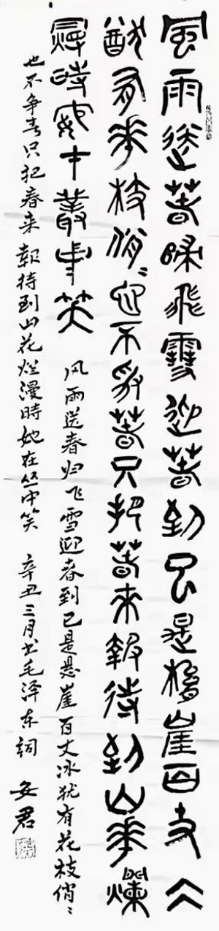 風雨送春歸飛雪迎春到已是懸崖百丈仌
猷有花枝俏〻也不爭春只把春來報待到山花爛
漫時她在叢中笑
风雨送春归飞雪迎春到已是悬崖百丈冰犹有花枝俏〻
也不争春只把春来報待到山花烂漫時她在丛中笑 辛丑三月书毛泽东词 安君